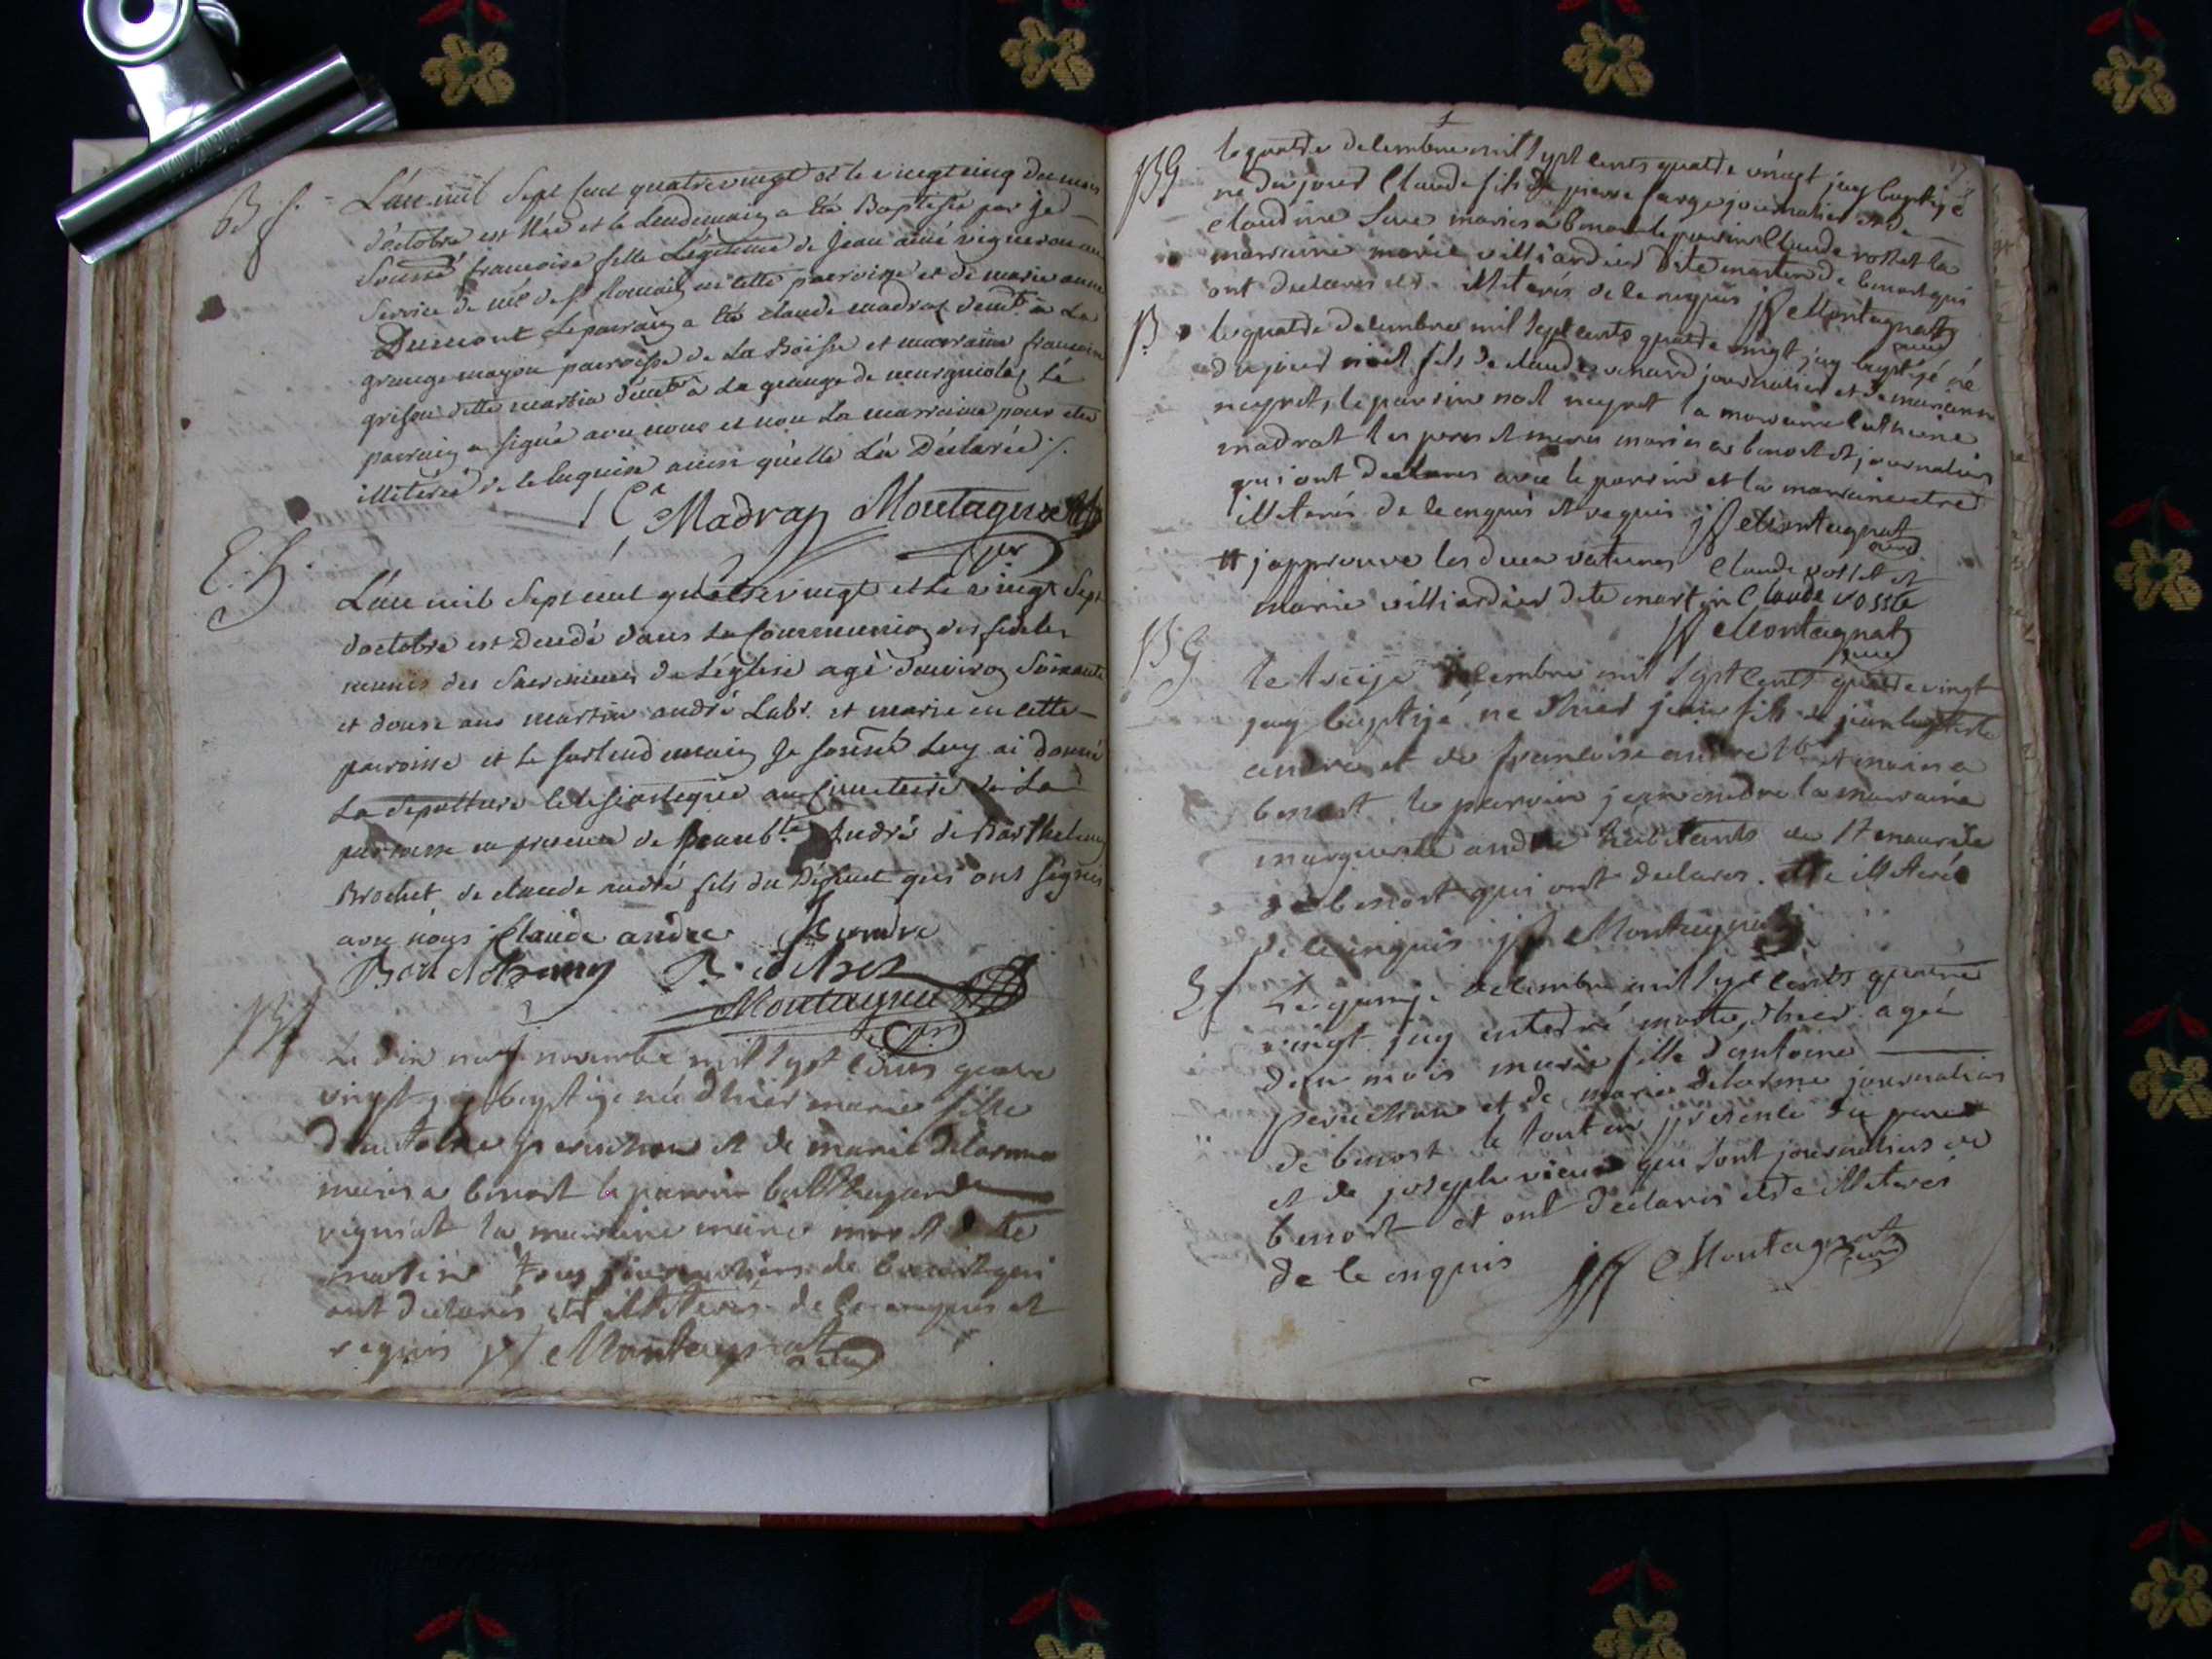 B f.
L'an mil Sept Cent quatrevingt et le vingt cinq du mois
d'octobre est Née et le Lendemain a été Baptisée par Je
Sousné francoise fille Légitime de Jean aimé vigneron au
Service de de St Romain en cette paroisse et de marie anne
Dumont Le parrain a été claude madraz demt. à La
grange mayou paroisse de La Boisse et marraine francoise
grison ditte martin demte à La grange de Le
parrain a signé avec nous et non La marraine pour etre
illiterée de le Enquise ainsi qu'elle L'a Déclarée /.
Ce Madraz Montagnat
cur
E. h.
L'an mil Sept cent quatrevingt et Le vingt Sept
d'octobre est Decedé dans La Communion des fideles
munis des Sacremens de L'église agé d'environ Soixante
et douse ans martin andré Labr. et marie en cette
paroisse et Le Surlendemain Je Sousné Luy ai donné
La Sepulture Eclesiastique au Cimetiere de La
paroisse en presence de Jean bte André de Barthelemy
Brochet de claude andré fils du Défunt qui ont signés
avec nous Claude andre andre
Montagnat
cur
Le dix neuf novembre mil sept cents quatre
vingt jay baptizé née d'hier marie fille
d'antoine peruchon et de marie delorme
maries a benost le parrin balthazarde
vigniat la marraine marie morel dite
matin tous journaliers de benost qui
ont declarés etre illiterés de le enquis et
requis Montagnat
curé
BG
le quatre decembre mil sept cents quatre vingt jay baptizé
né du jour Claude fils de pierre farge journalier et de
claudine maries a benost le parrin Claude rosset la
marraine marie villiardier dite martin de benost qui
ont declarés etre illiterés de le enquis jf Montagnat
curé
B
le quatre decembre mil sept cents quatre vingt jay baptizé né
du jour noel fils de claude venard journalier et de marianne
neyret, le parrin noel neyret la marraine catherine
madrat les peres et meres maries a benost et journaliers
qui ont declares avec le parrin et la marraine etre
illiterés de le enquis et requis jf Montagnat
curé
# japprouve les deux ratures Claude rosset et
marie villiardier dite martin Claude rosset
jf Montagnat
curé
BG
le treize decembre mil sept cents quatre vingt
jay baptizé né d'hier jean fils de jean baptiste
andre et de francoise andre lbr et maries a
benost le parrin jean andre la marraine
marguerite andre habitants de St maurice
de benost qui ont declares etre illiterés
de le enquis jf Montagnat
Le quinze decembre mil sept cents quatre
vingt jay enterré morte d'hier agée
d'un mois marie fille d'antoine
peruchon et de marie delorme journaliers
de benost le tout en presence du pere
et de joseph vieux qui sont journaliers de
benost et ont declarés etre illiterés
de le enquis jf Montagnat
curé